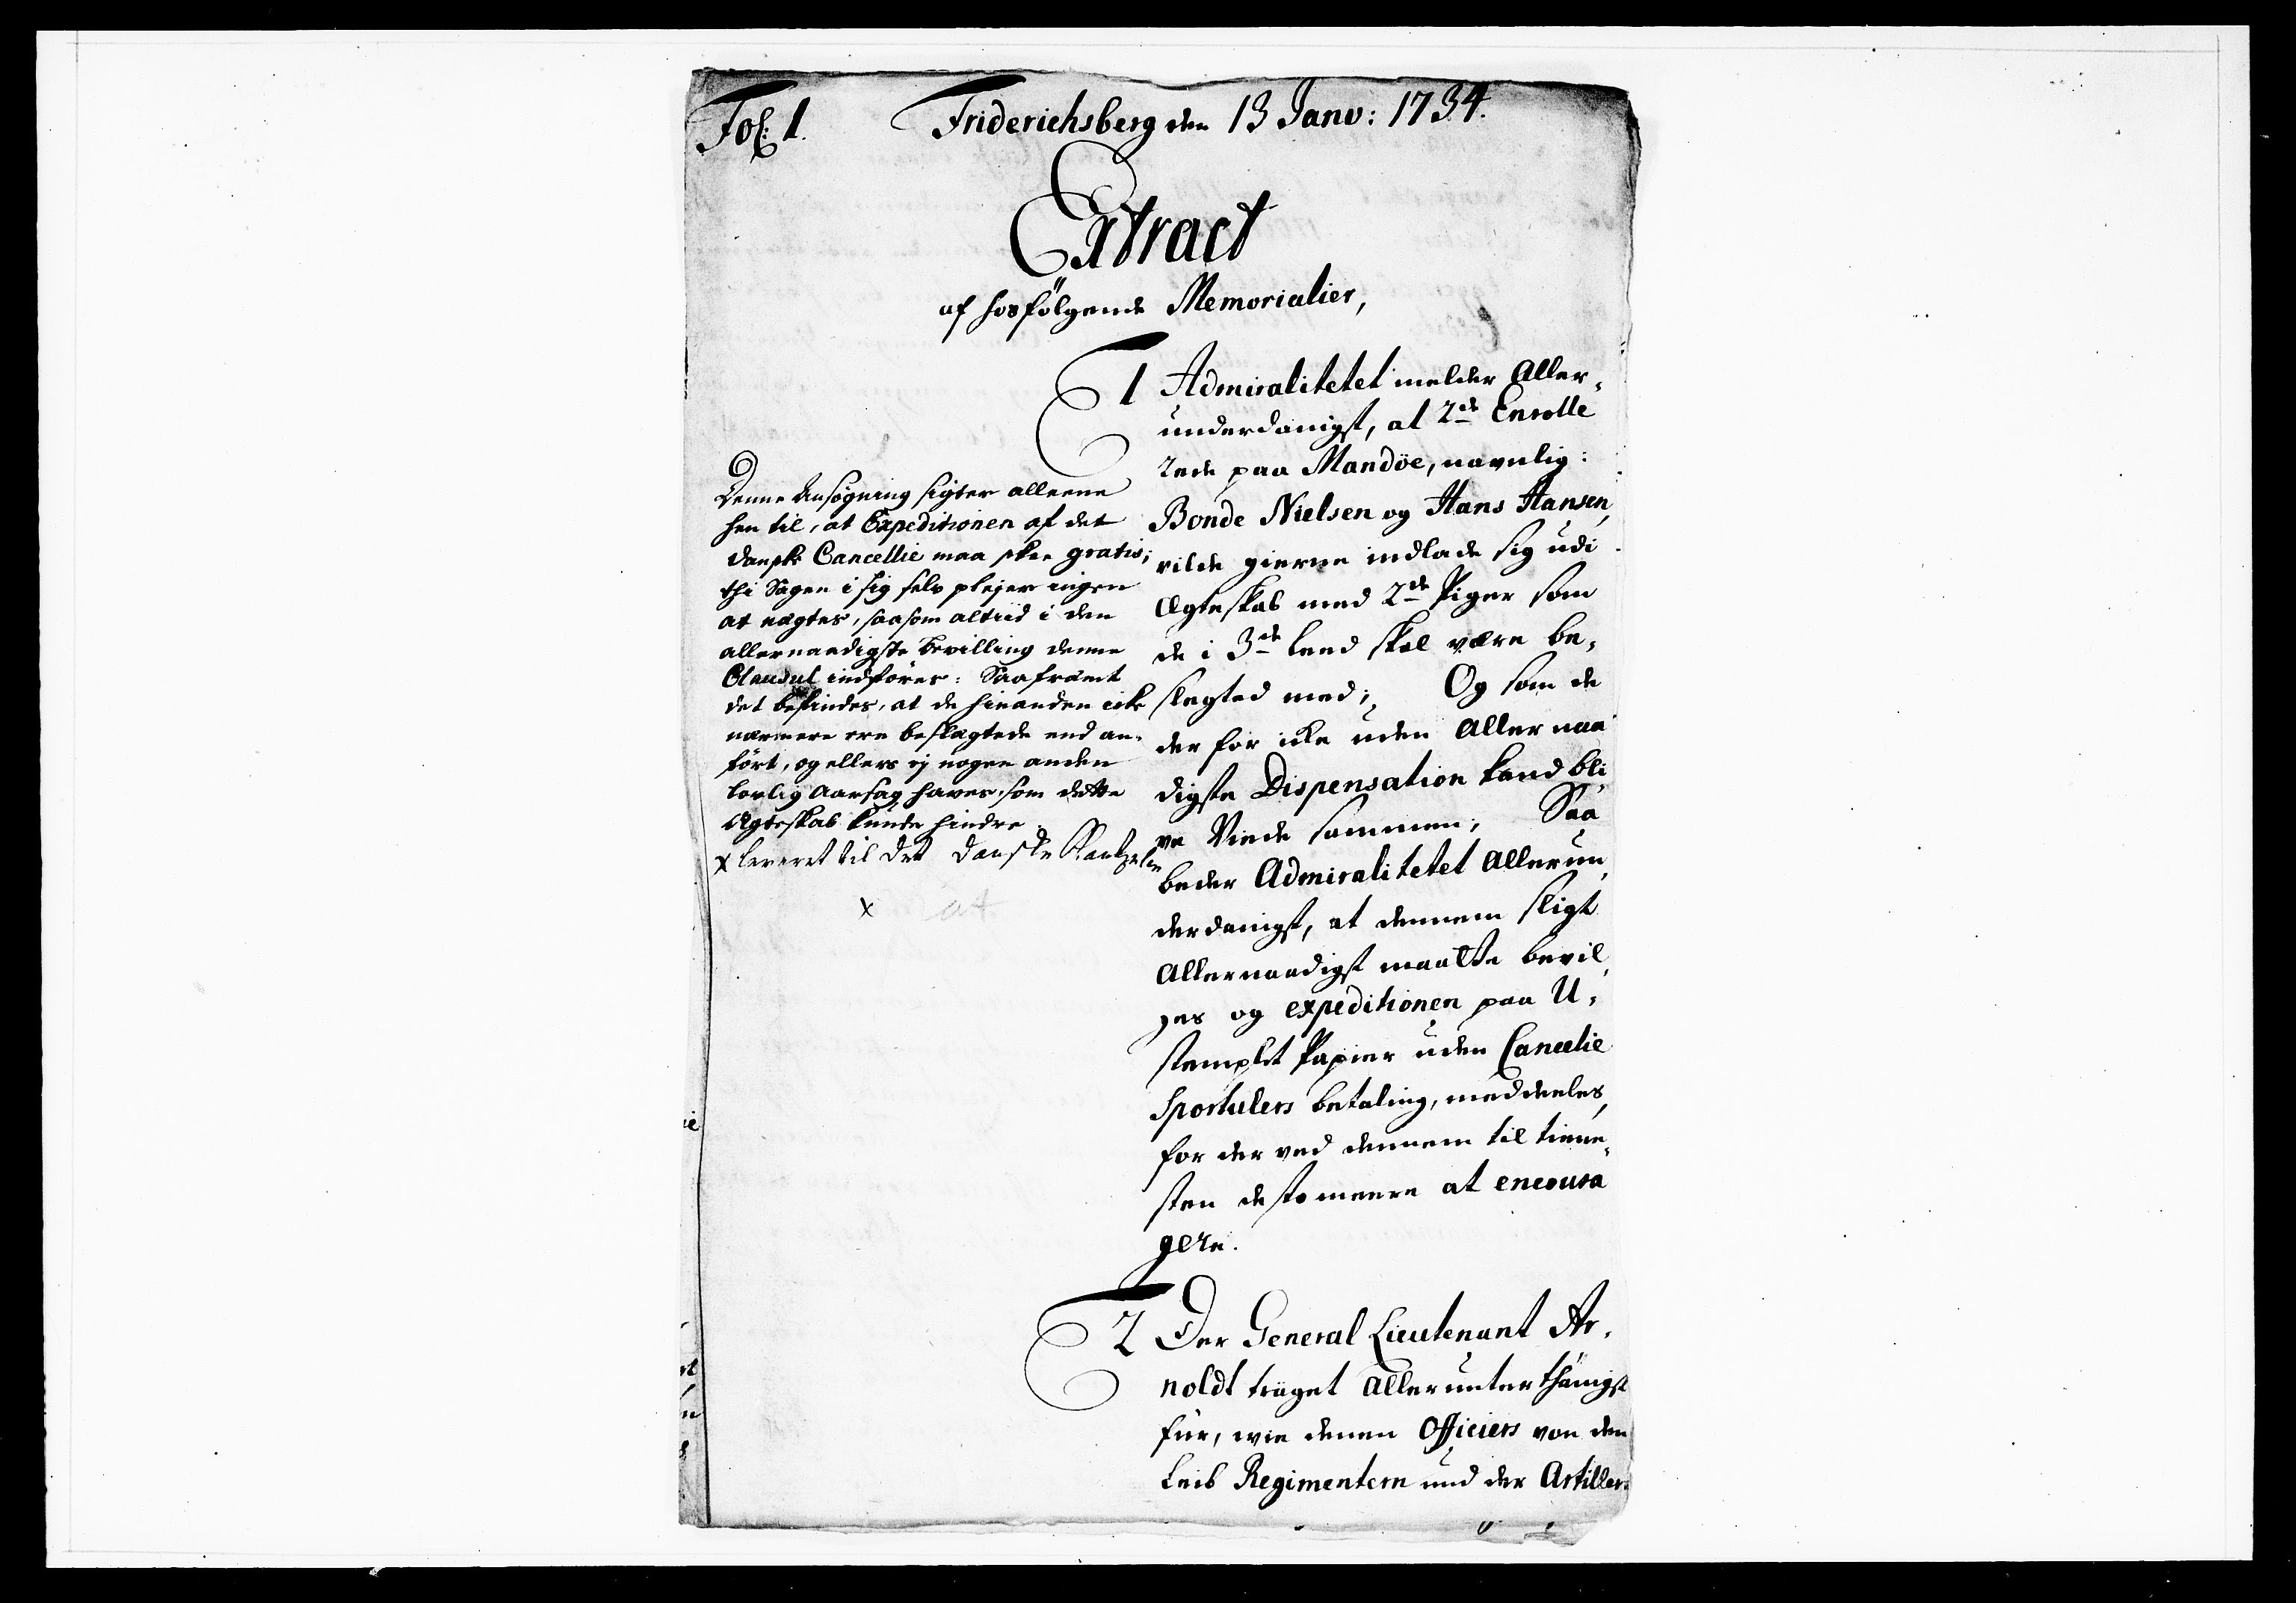 Fol: 1.
Friderichsberg den 13 Janv: 1734.
Extract
af hosfölgende Memorialier,
1 Admiralitetet melder Aller,
underdanigst, at 2de Enrolle
rede paa Mandöe, navnlig:
Bonde Nielsen og Hans Hansen,
vilde gierne indlade sig udi
Ægteskab med 2de Piger som
de i 3de leed skal være be,
slegted med; Og som de
der for icke uden Aller naa
digste Dispensation kand bli,
ve Viede sammen; Saa
beder Admiralitetet Allerun,
derdanigst, at dennem sligt
Allernaadigst maatte bevil,
ges og expeditionen paa U,
stemplet Papier uden Cancelie
Sportulers betaling, meddeeles,
for der ved dennem til tiene,
sten desto meere at encoura
gere.
Denne Ansøgning sigter alleene
hen til, at Expeditionen af det
danske Cancellie maa skee gratis;
thi Sagen i sig selv plejer ingen
at nægtes, saasom altiid i den
allernaadigste bevilling denne
Clausul indföres: Saafremt
det befindes, at de hinanden icke
nærmere ere beslægtede end an,
fört, og ellers ej nogen anden
lovlig Aarsag haves, som dette
Ægteskab kunde hindre.
x leveret til det danske Cantzelie
x
2 Der General Lieutenant Ar,
noldt träget Allerunterthänigst
für, wie denen Officiers von den
Leib Regimentern und der Artiller,